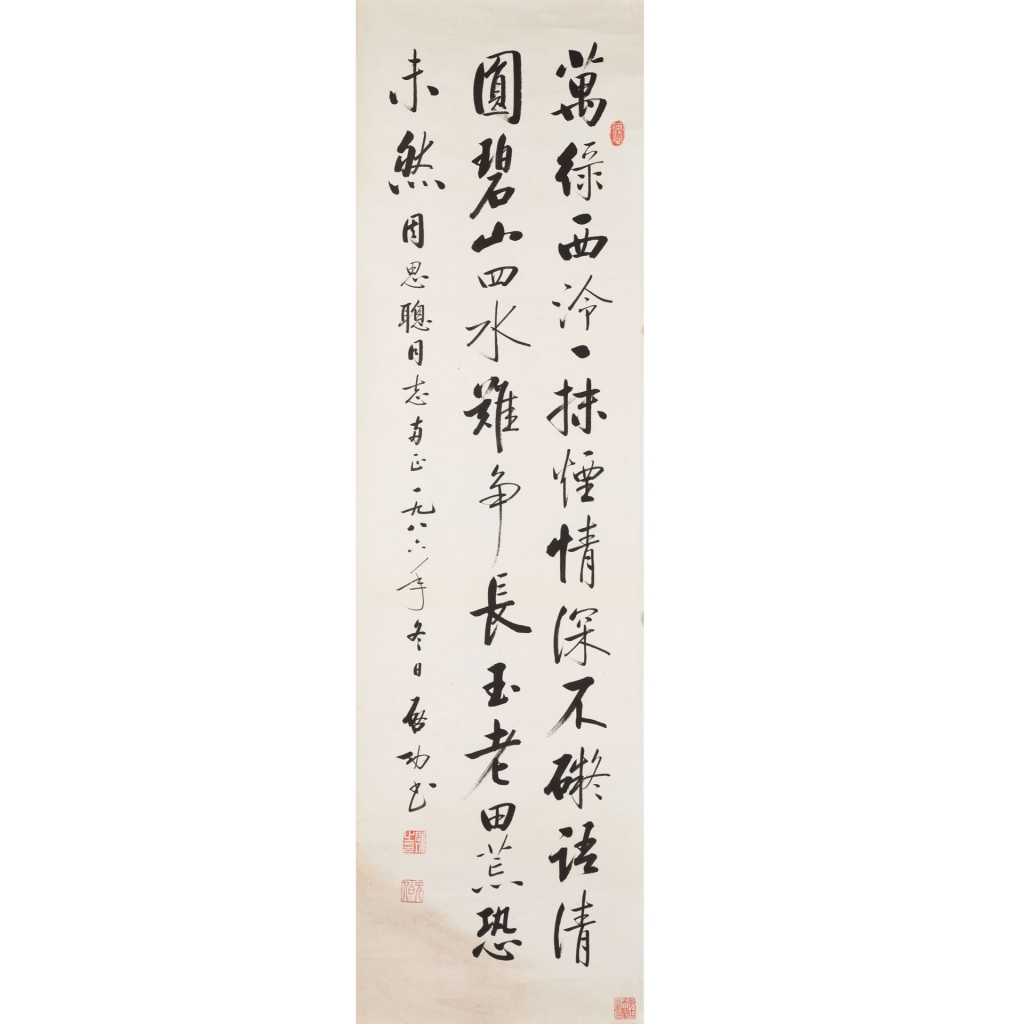 萬綠西泠一抹煙情深不礙語清
圓碧山四水難爭長玉老田荒恐
未然 周思聰同志两正 一九八六年冬日 啟功書